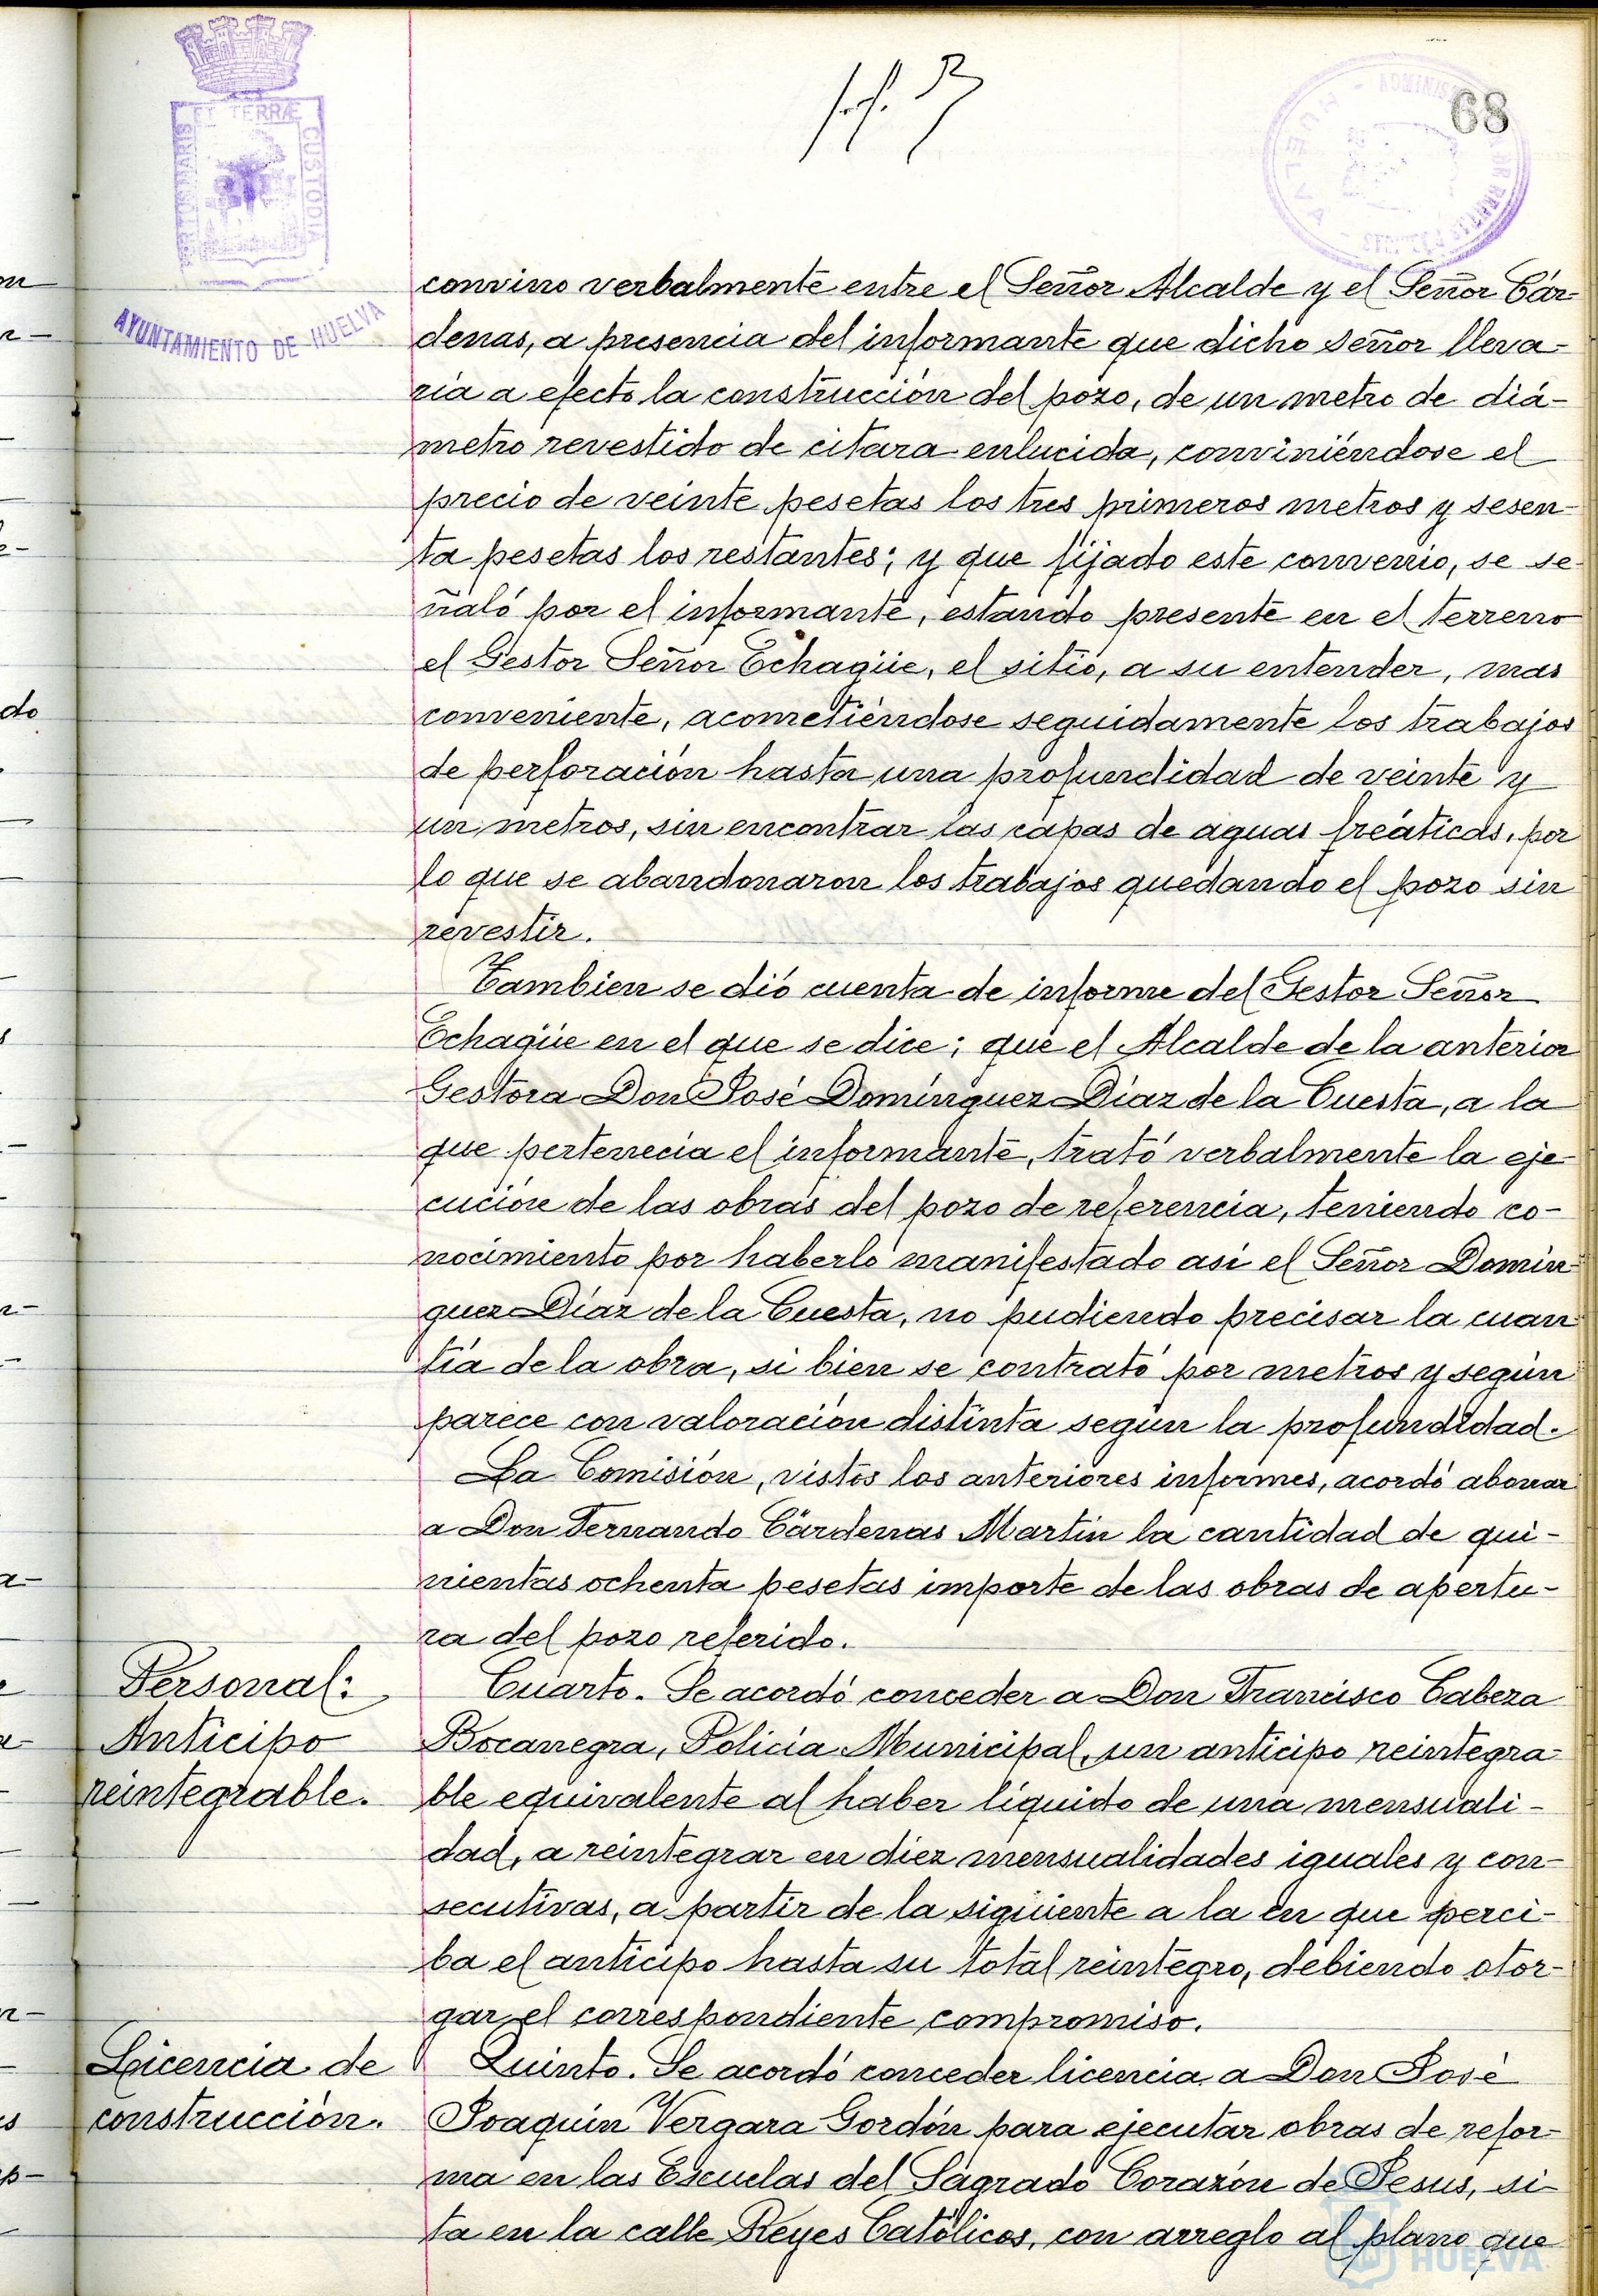 68
PORTUS MARIS ET TERRÆ CUSTODIA
AYUNTAMIENTO DE HUELVA
convino verbalmente entre el Señor Alcalde y el Señor Cár-
denas, a presencia del informante que dicho señor lleva-
ría a efecto la construcción del pozo, de un metro de diá-
metro revestido de citara enlucida, conviniéndose el
precio de veinte pesetas los tres primeros metros y sesen-
ta pesetas los restantes; y que fijado este convenio, se se-
ñaló por el informante, estando presente en el terreno
el Gestor Señor Echagüe, el sitio, a su entender, mas
conveniente, acometiéndose seguidamente los trabajos
de perforación hasta una profundidad de veinte y
un metros, sin encontrar las capas de aguas freáticas, por
lo que se abandonaron los trabajos quedando el pozo sin
revestir.
Tambien se dió cuenta de informe del Gestor Señor
Echagüe en el que se dice; que el Alcalde de la anterior
Gestora Don José Domínguez Díaz de la Cuesta, a la
que pertenecía el informante, trató verbalmente la eje-
cución de las obras del pozo de referencia, teniendo co-
nocimiento por haberlo manifestado así el Señor Domín-
guez Díaz de la Cuesta, no pudiendo precisar la cuan-
tía de la obra, si bien se contrató por metros y según
parece con valoración distinta según la profundidad.
La Comisión, vistos los anteriores informes, acordó abonar
a Don Fernando Cárdenas Martín la cantidad de qui-
nientas ochenta pesetas importe de las obras de apertu-
ra del pozo referido.
Personal:
Anticipo
reintegrable.
Cuarto. Se acordó conceder a Don Francisco Cabeza
Bocanegra, Policía Municipal, un anticipo reintegra-
ble equivalente al haber líquido de una mensuali-
dad, a reintegrar en diez mensualidades iguales y con-
secutivas, a partir de la siguiente a la en que perci-
ba el anticipo hasta su total reintegro, debiendo otor-
gar el correspondiente compromiso.
Licencia de
construcción.
Quinto. Se acordó conceder licencia a Don José
Joaquín Vergara Gordón para ejecutar obras de refor-
ma en las Escuelas del Sagrado Corazón de Jesus, si-
ta en la calle Reyes Católicos, con arreglo al plano que
HUELVA